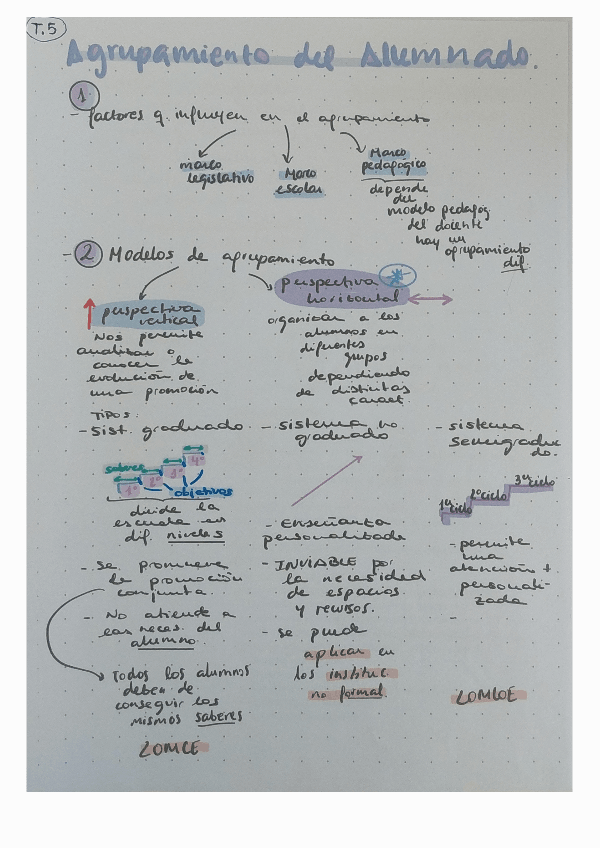 T.5
Agrupamiento del Alumnado.
1
- factores q influyen en el agrupamiento
marco
legislativo
Marco
escolar
Marco
pedagógico
depende
del
modelo pedagóg
del docente
hay un
agrupamiento
dif.
- 2 Modelos de agrupamiento
perspectiva
vertical
Nos permite
analizar o
conocer la
evolución de
una promoción
perspectiva
horizontal
organizan a los
alumnos en
diferentes
grupos
dependiendo
de distintas
caract.
TIPOS:
- Sist. graduado
saberes
1º 2º 3º 4º
objetivos
divide la
escuela en
dif. niveles
- Se promueve
la promoción
conjunta.
- No atiende a
las neces. del
alumno.
Todos los alumnos
deben de
conseguir los
mismos saberes
LOMCE
- sistema no
graduado
- Enseñanza
personalizada
- INVIABLE por
la necesidad
de espacios
y recursos.
- se puede
aplicar en
los instituc.
no formal.
- sistema
semigradua
do.
1er ciclo
2º ciclo
3er ciclo
- permite
una
atención +
personali-
zada
-
LOMLOE